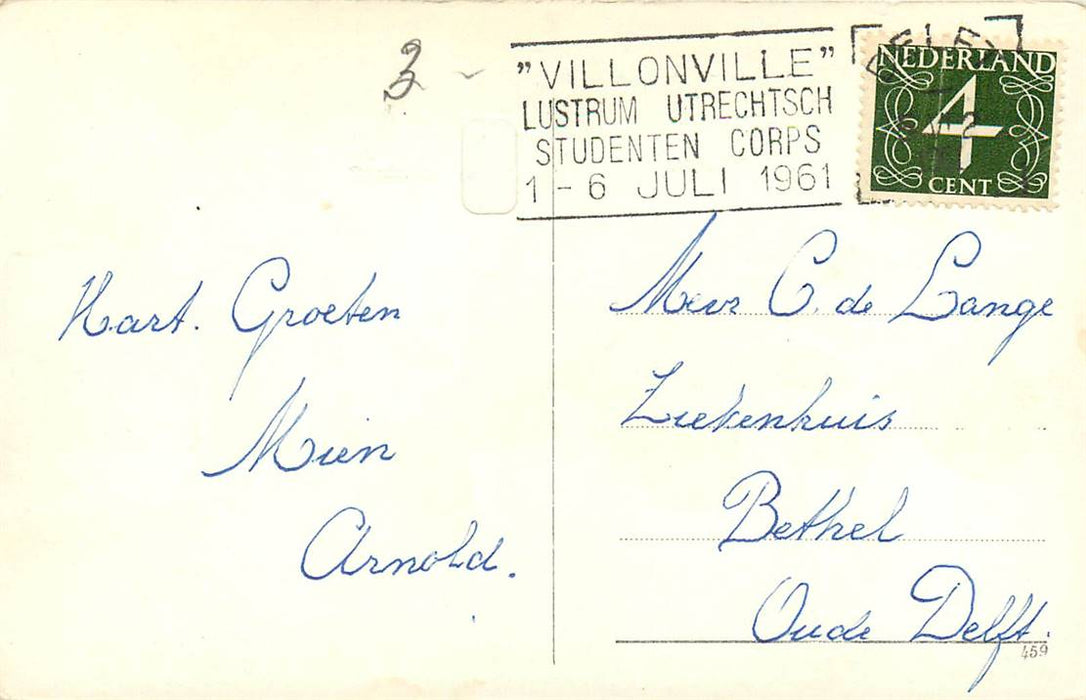 3
"VILLONVILLE"
LUSTRUM UTRECHTSCH
STUDENTEN CORPS
1 - 6 JULI 1961
NEDERLAND
4
CENT
Hart. Groeten
Mien
Arnold.
Mevr C. de Lange
Ziekenhuis
Bethel
Oude Delft.
459